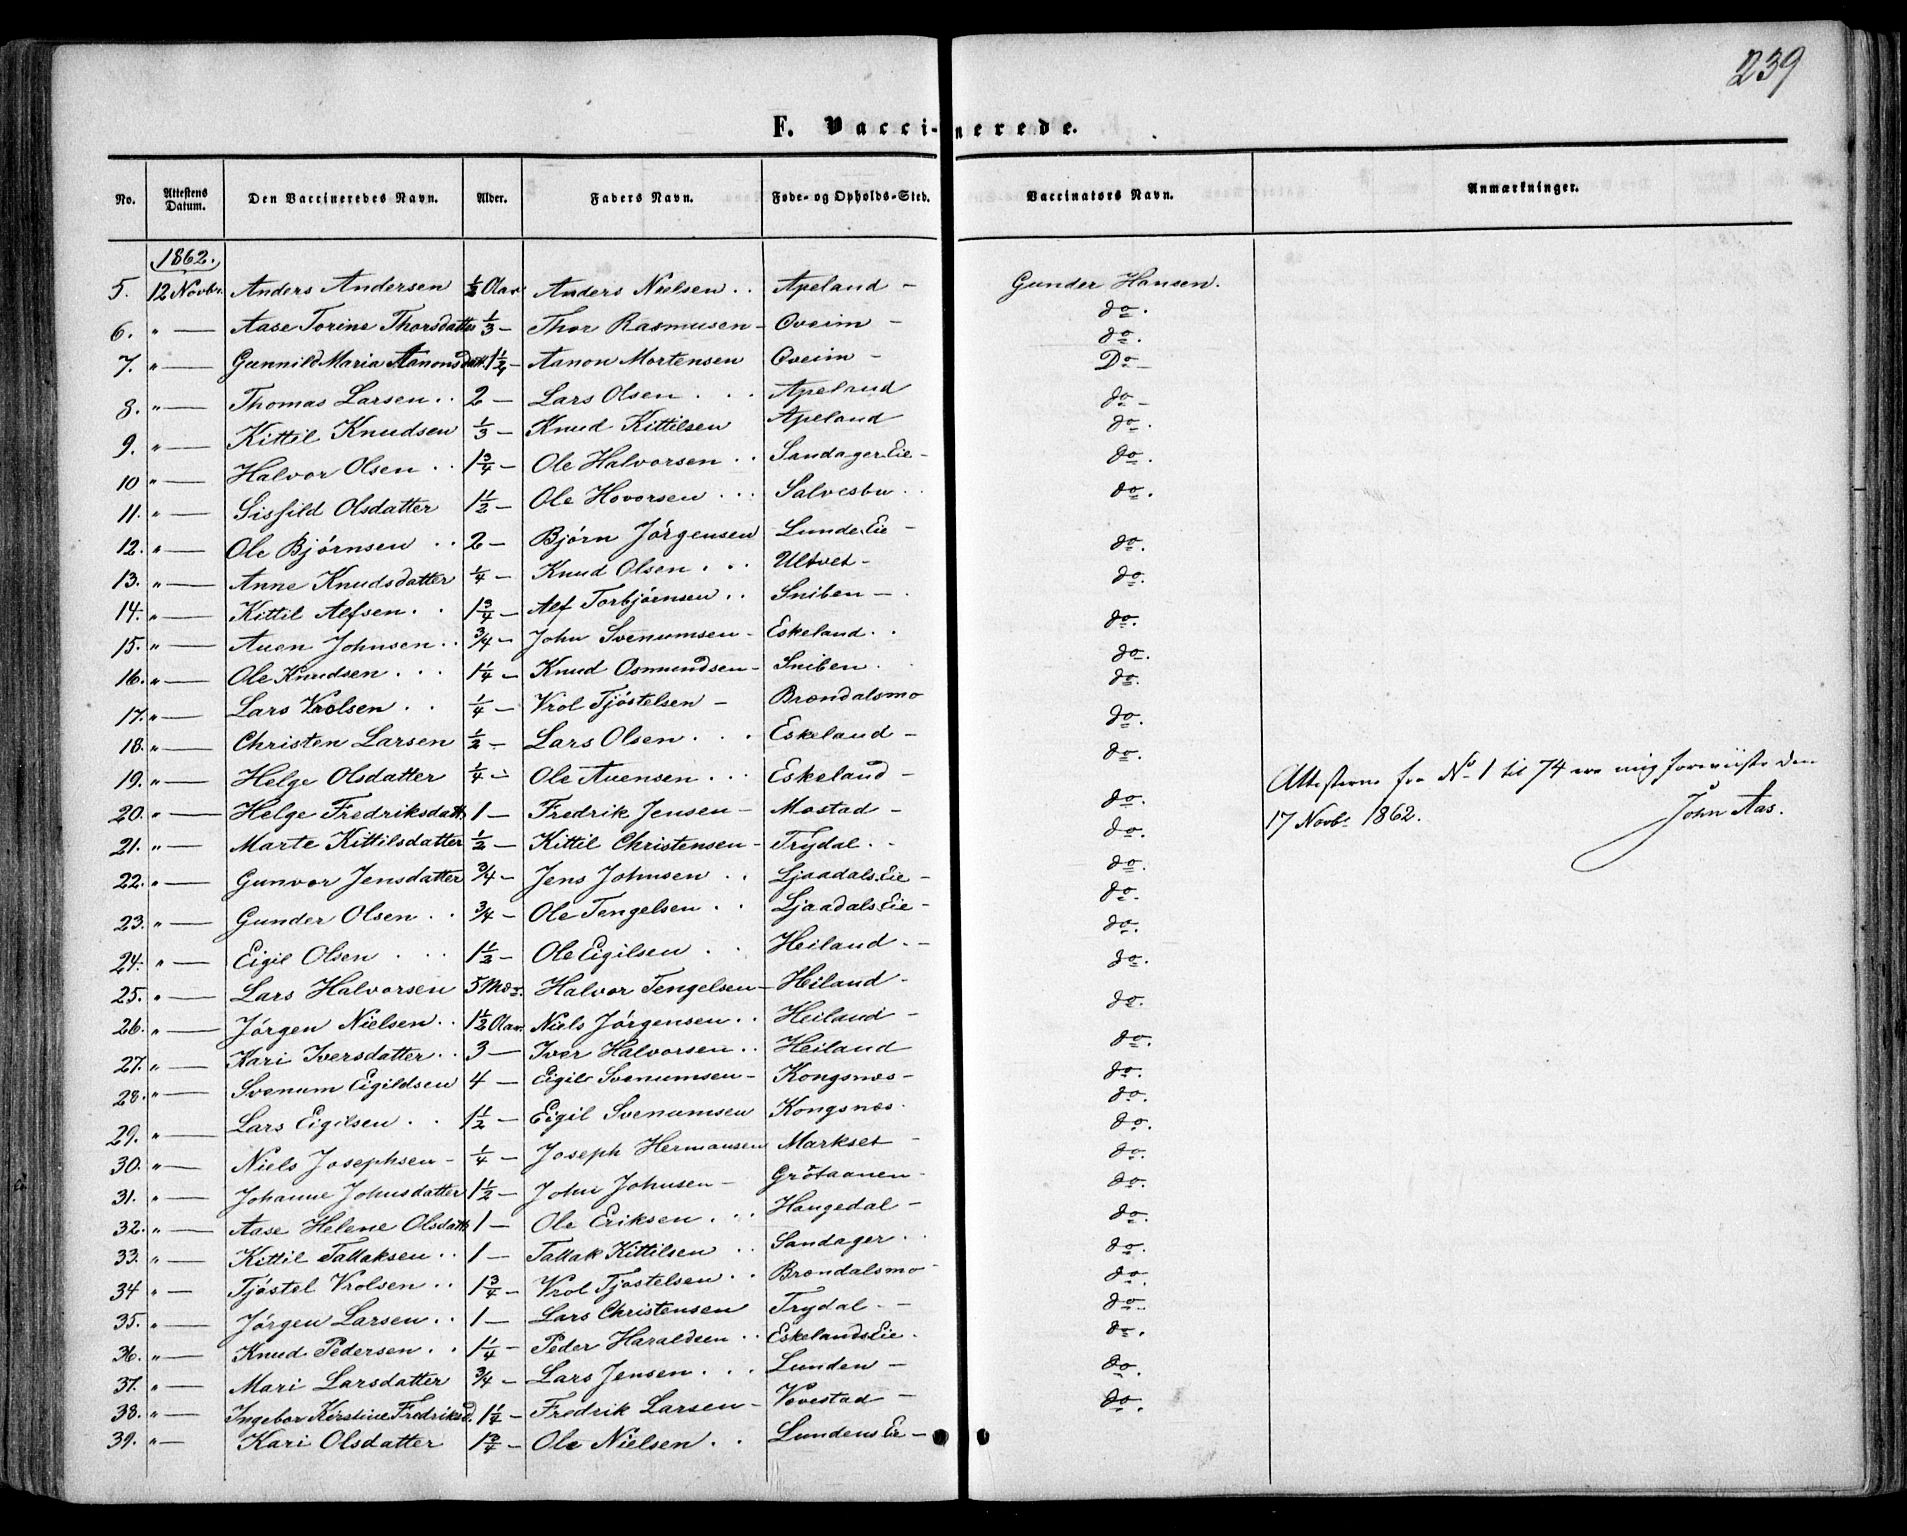 239
F. Vaccinerede.
No. Attestens Datum. Den Vaccineredes Navn. Alder. Faders Navn. Føde- og Opholds-Sted. Vaccinators Navn. Anmærkninger.
1862.
5. 12 Novbr. Anders Andersen ½ Aar Anders Nielsen . . Apeland – Gunder Hansen.
6. " — Aase Torine Thorsdatter ⅓ – Thor Rasmusen – Oveim – do.
7. " — Gunnild Maria Aanonsdatt. 1½ – Aanon Mortensen Oveim – do.
8. " — Thomas Larsen . . 2 – Lars Olsen . . . Apeland Do –
9. " — Kittil Knudsen ⅓ – Knud Kittilsen Apeland do –
10 " — Halvor Olsen . . 1¾ – Ole Halvorsen . . Sandager Eie – do.
11. " — Sisfild Olsdatter 1½ Ole Hovorsen . . . Salvesbu . . do.
12. " — Ole Bjørnsen . . 2 – Bjørn Jørgensen Lunde Eie – do.
13. " — Anne Knudsdatter ¼ – Knud Olsen . . . Ultvet – do.
14. " — Kittil Alfsen . . 1¾ – Alf Torbjørnsen . . Sniben – . do.
15. " — Auen Johnsen . . ¾ – John Svenumsen – Eskeland . . do.
16. " — Ole Knudsen . . . 1¼ – Knud Osmundsen – Sniben . . do.
17. " — Lars Vrolsen . . ¼ – Vrol Tjøstelsen – Brændalsmo do.
18. " — Christen Larsen ½ – Lars Olsen . . . Eskeland – do.
19. " — Helge Olsdatter ¼ – Ole Auensen . . . Eskeland – do.
20. " — Helge Fredriksdatt. 1 – Fredrik Jensen – Mostad – do.
21. " — Marte Kittilsdatter ½ – Kittil Christensen – Trydal . . do.
22. " — Gunvor Jensdatter ¾ – Jens Johnsen . . Ljaadals Eie – do.
23. " — Gunder Olsen . . ¾ – Ole Tengelsen . . Ljaadals Eie – do.
24. " — Eigil Olsen . . . 1½ – Ole Eigilsen . . Heiland . – do.
25. " — Lars Halvorsen 5 Md. Halvor Tengelsen – Heiland – do.
26. " — Jørgen Nielsen . . 1½ Aar. Niels Jørgensen . . Heiland – do.
27. " — Kari Iversdatter . . 3 — Iver Halvorsen . . Heiland do.
28. " — Svenum Eigildsen 4 – Eigil Svenumsen – Kongsnæs – do.
29. " — Lars Eigilsen . . 1½ – Eigil Svenumsen Kongsnæs . do.
30. " — Niels Josephsen – ¼ – Joseph Hermansen Markset – do.
31. " — Johanne Johnsdatter 1½ – John Johnsen – Grötaanen – do.
32. " — Aase Helene Olsdatt. 1 – Ole Eriksen . . . Haugedal – do.
33. " — Kittil Tallaksen . . 1 – Tallak Kittilsen . . Sandager . . do.
34 " — Tjøstel Vrolsen . . 1¾ – Vrol Tjøstelsen . . Brændalsmo – do.
35. " — Jørgen Larsen . . 1 – Lars Christensen Trydal . – do.
36. " — Knud Pedersen . . 1¼ – Peder Haraldsen . . Eskelands Eie . do.
37. " — Mari Larsdatter ¾ – Lars Jensen . . . Lunden – do.
38. " — Ingebor Kirstine Fredriksd. 1¼ – Fredrik Larsen – Vovestad – do.
39. " — Kari Olsdatter 1¾ – Ole Nielsen . . Lundens Eie – do.
Attesterne fra No 1 til 74 ere mig foreviiste den
17 Novbr 1862.
John Aas.